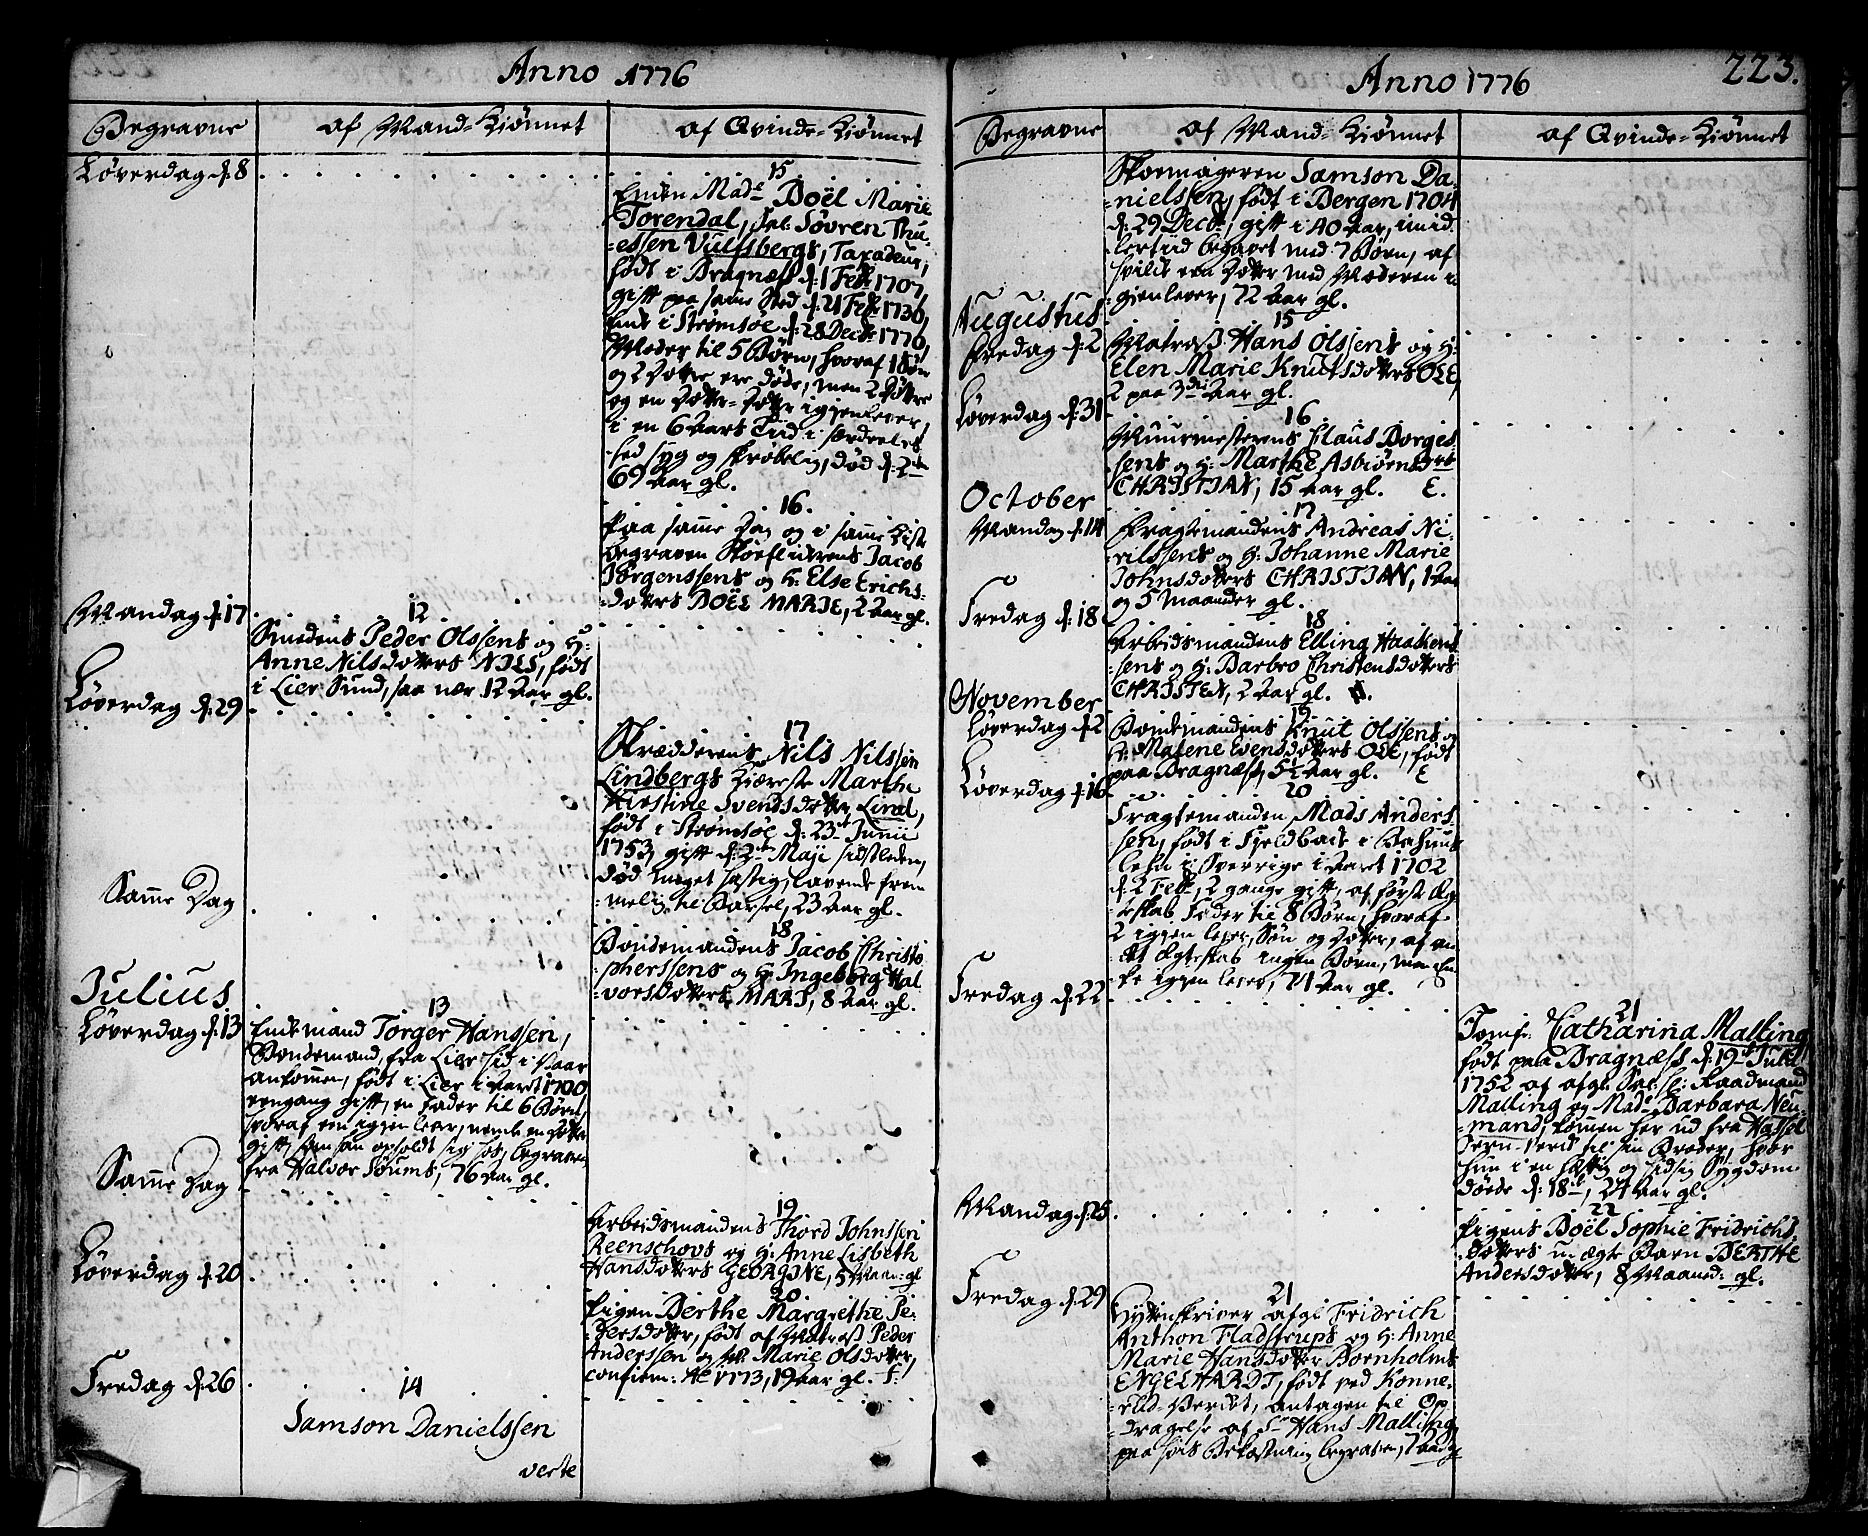 Anno 1776
Begravne
af Mand-Kiønnet
af Qvinde-Kiønnet
Løverdag d. 8
15
Enken Made Boël Marie
Torendal, Sal. Søvren Thu-
=essen Vulfsbergs, Taxadeur,
født i Bragnæss d. 1 Febr 1707,
gift paa samme Sted d. 21 Febr 1736,
Enke i Strømsöe d. 28 Decbr 1776,
Moder til 5 Børn, hvoraf 1 Søn
og 2 Døttre ere døde, men 2 Døttre
og en Dotter-Dotter igienlever,
i en 6 Aars Tiid i særdeles-
hed syg og skrøbelig, død d. 2den
69 Aar gl.
16.
Paa samme Dag og i samme Kiste
begraven Skoeflikerens Jacob
Jörgenssens og H: Else Erichs-
=dotters BOËL MARIE, 2 Aar gl.
Mandag d. 17
12
Smedens Peder Olssens og H:
Anne Nilsdotters NILS, født
i Lier Sund, saa nær 12 Aar gl.
Løverdag d. 29
17
Skrædderens Nils Nilssen
Lindbergs Kiæreste Marthe
Kirstine Svendsdotter Lind,
født i Strømsöe d. 23de Junii
1753, gift d. 2den Maji sidstleden,
død meget hastig, lavende frem-
=melig til Barsel, 23 Aar gl.
Samme Dag
18
Bondemandens Jacob Christo
=pherssens og H: Ingeborg Hal
=vorsdotters MARI, 8 Aar gl.
Julius
Løverdag d. 13
13
Enkemand Torger Hanssen,
Bondemand, fra Lier hid i Vaar
ankommen, født i Lier i Aaret 1700,
eengang gift, en Fader til 6 Børn,
hvoraf een igien lever, nemlig en Dotter
gift, som han opholdt sig hos, begraven
fra Halvor Söums, 76 Aar gl.
Samme Dag
19
Arbeidsmandens Thord Johnssen
Reenschovs og H: Anne Lisbeth
Hansdotters GEORGINE, 5 Maan: gl
Løverdag d. 20
20
Pigen Berthe Margrethe Pe-
=dersdotter, født af Matros Peder
Anderssen og M. Marie Olsdotter,
confirm: Ao 1773, 19 Aar gl. F.
Fredag d. 26
14
Samson Danielssen
verte
Anno 1776
223.
Begravne
af Mand-Kiønnet
af Qvinde-Kiønnet
Skoemageren Samson Da-
=nielssen, født i Bergen 1704
d. 29 Decbr, gift i 40 Aar, imid
lertiid begavet med 7 Børn, af
hvilke een Dotter med Moderen i
=gienlever, 72 Aar gl.
Augustus
Fredag d. 2
15
Matross Hans Olssens og H:
Elen Marie Knutsdotters OLE,
2 paa 3die Aar gl.
Løverdag d. 31
16
Muurmesterens Claus Borges
sens og H: Marthe Asbiörnsdrs
CHRISTIAN, 15 Aar gl. E.
October
Mandag d. 14
17
Fragtemandens Andreas Ni-
=rilssens og H: Johanne Marie
Johnsdotters CHRISTIAN, 1 Aar
og 5 Maaneder gl.
Fredag d. 18
18
Arbeidsmandens Elling Haakens
=sens og H: Barbro Christensdotters
CHRISTEN, 2 Aar gl.
November
Løverdag d. 2
19
Bondemandens Knut Olssens og
H: Malene Evensdotters OLE, født
paa Bragnæss, 5½ Aar gl. E
Løverdag d. 16
20
Fragtemanden Mads Anders-
sen, født i Fjeldbacke i Bahuus
Lehn i Sverrige i Aaret 1702
d. 2 Febr, 2 gange gift, af første Æg-
teskab Fader til 8 Børn, hvoraf
2 igien lever, Søn og Dotter, af an-
det Ægteskab ingen Børn, men En-
ke igien lever, 74 Aar gl.
Fredag d. 22
21
Jomfr. Catharina Malling
født paa Bragnæss d. 19de Julii
1752 af afgl. Sal. Hr: Raadmand
Malling og Made Barbara Neu-
=mand, kommen her ud fra Hassel
Jern-Verk til sin Broder, hvor
hun i en hastig og hidsig Sygdom
döde d. 18de, 24 Aar gl.
Mandag d. 25
22
Pigens Boël Sophie Fridrichs
Dotters uægte Barn BERTHE
Andersdotter, 8 Maaned: gl.
Fredag d. 29
21
Hytteskriver afgl. Fridrich
Anthon Fladstrups og H: Anne
Marie Hansdotter Bornholms
ENGELHARDT, født ved Konne-
rud-Verket, antagen til Op
dragelse af Sr Hans Malling
paa hvis Bekostning begraven, 7 Aar gl